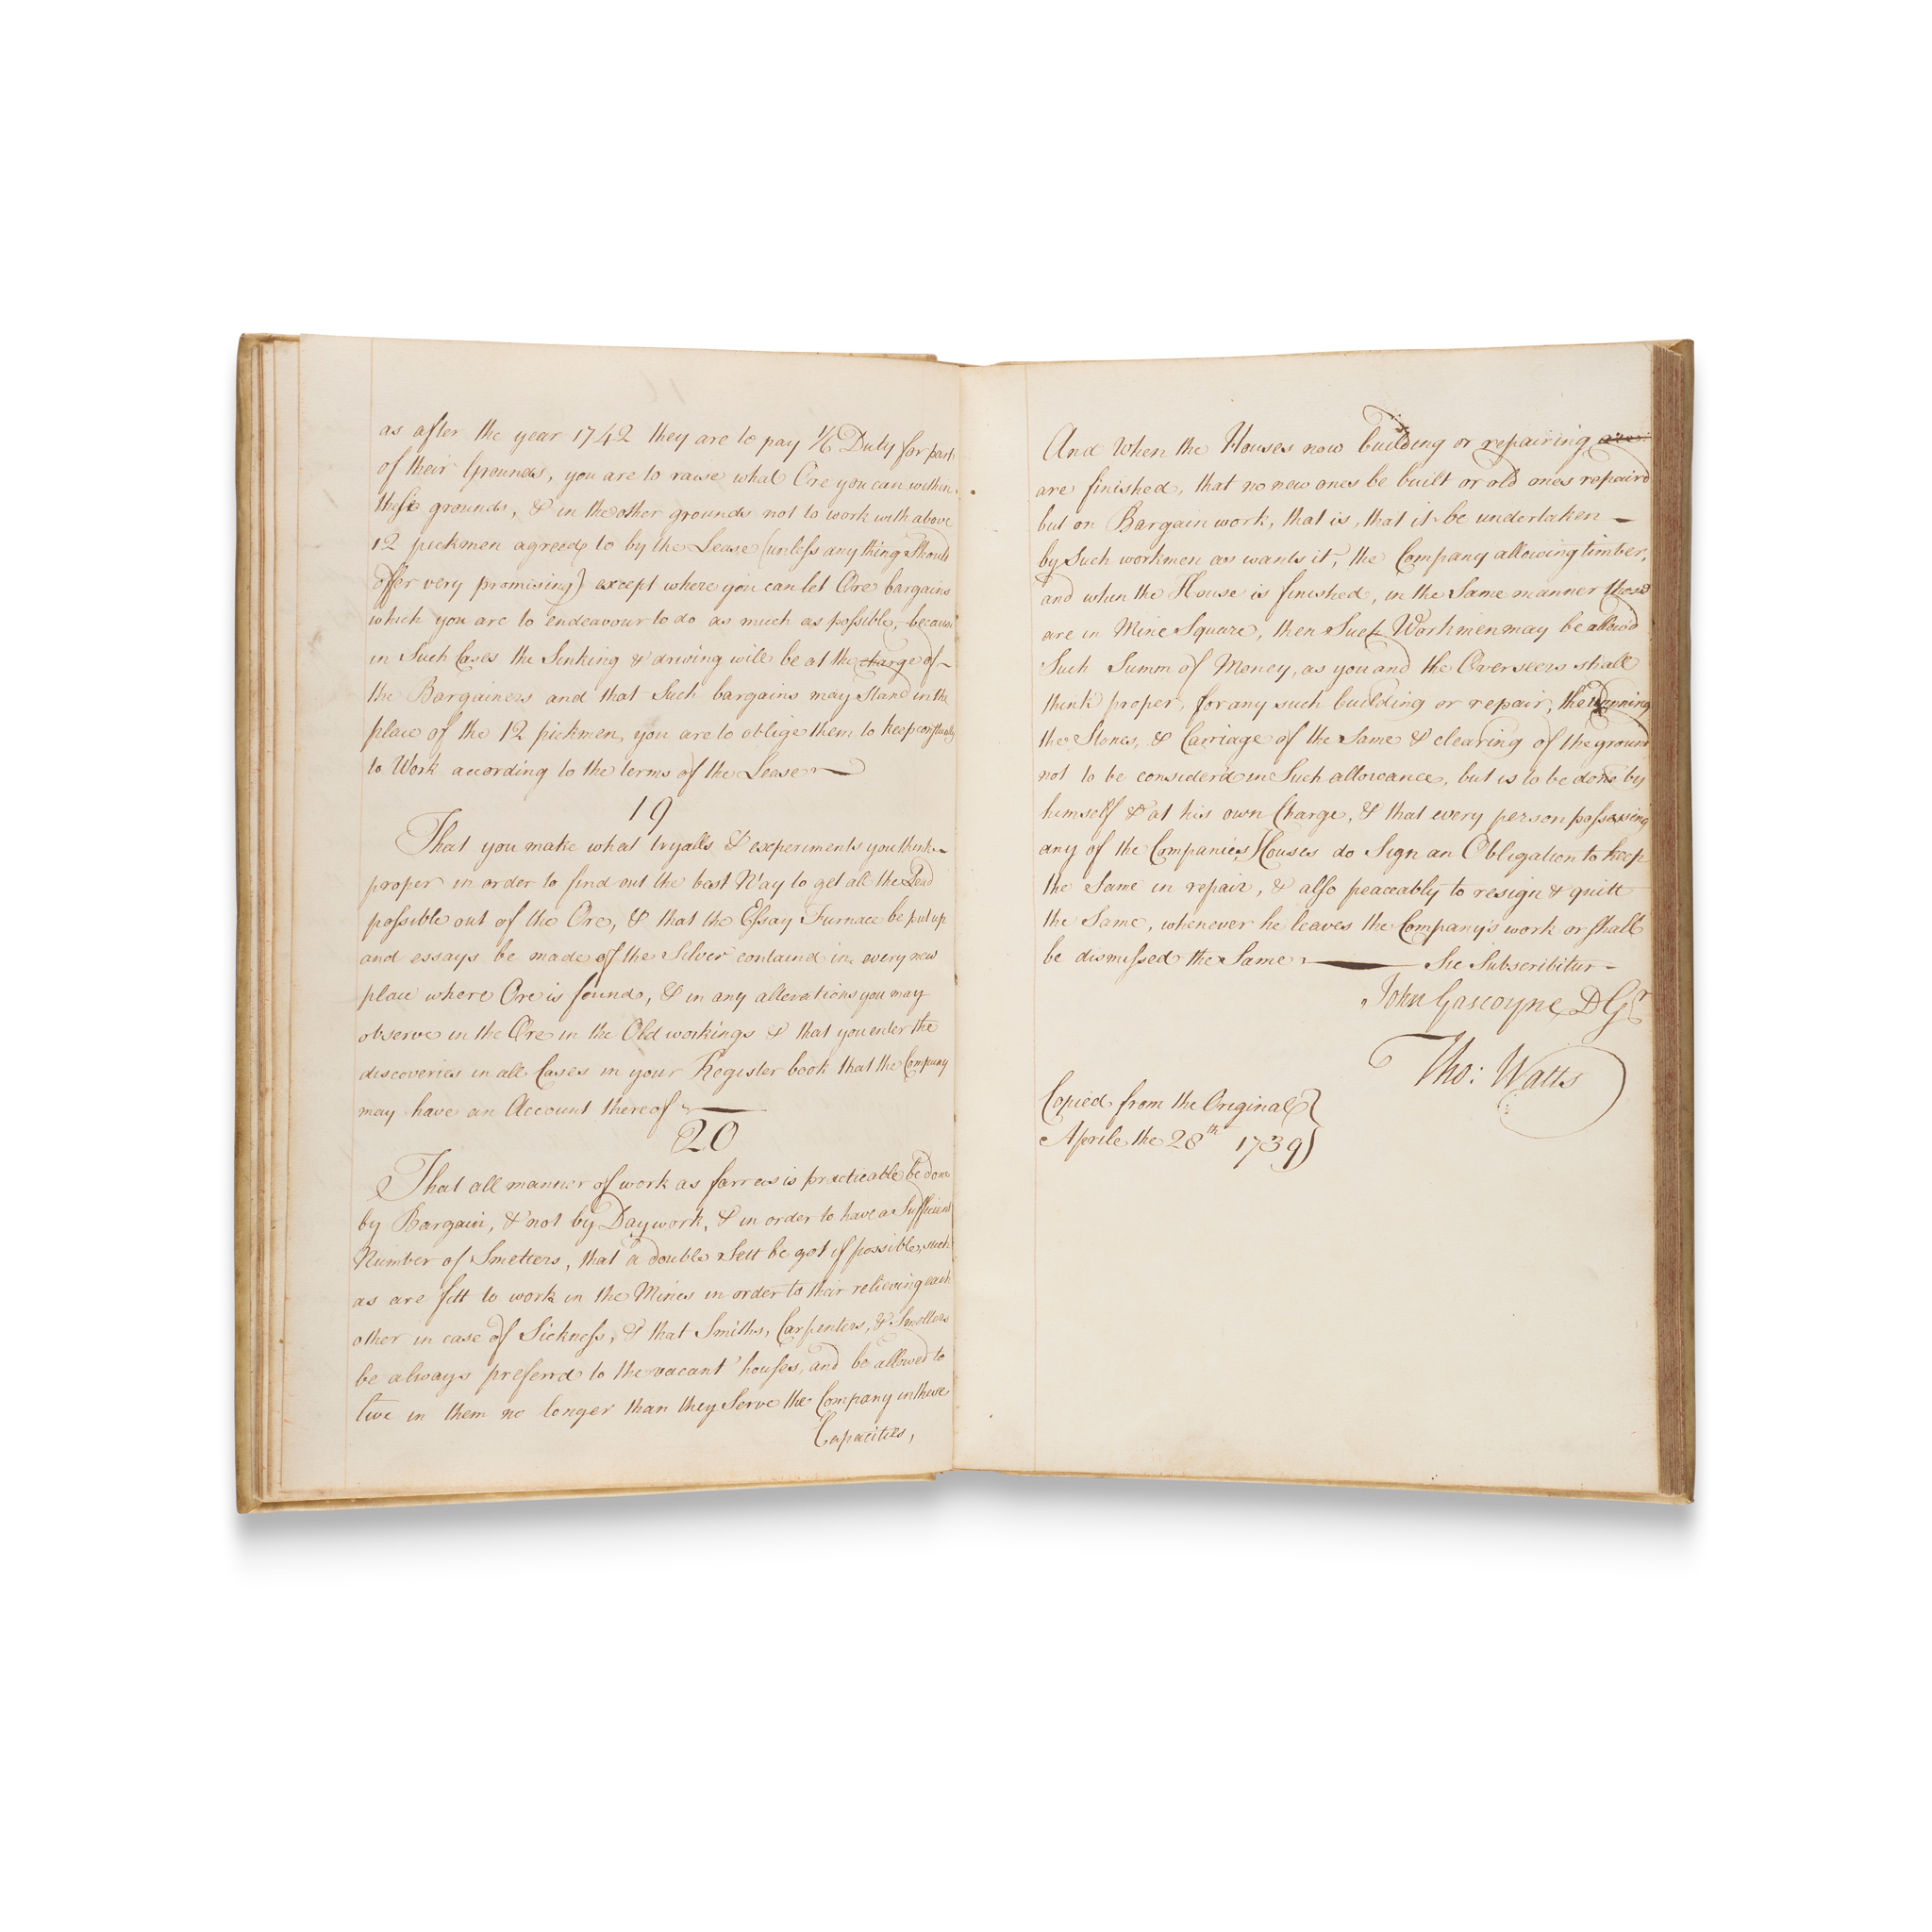 as after the year 1742 they are to pay 1/6 Duty for part
of their Grounds, you are to raise what Ore you can within
these grounds, & in the other grounds not to work with above
12 pickmen agreed to by the Lease (unless any thing Should
offer very promising) except where you can let Ore bargains
which you are to endeavour to do as much as possible, because
in Such Cases the Sinking & driving will be at the charge of
the Bargainers and that Such bargains may Stand in the
place of the 12 pickmen, you are to oblige them to keep constantly
to Work according to the terms of the Lease
19
That you make what tryalls & experiments you think
proper in order to find out the best Way to get all the Lead
possible out of the Ore, & that the Essay Furnace be put up
and essays be made of the Silver containd in every new
place where Ore is found, & in any alterations you may
observe in the Ore in the Old workings & that you enter the
discoveries in all Cases in your Register book that the Company
may have an Account thereof
20
That all manner of work as farr as is practicable be done
by Bargain, & not by Daywork, & in order to have a Sufficient
Number of Smelters, that a double Sett be got if possible, such
as are fitt to work in the Mines in order to their relieving each
other in case of Sickness, & that Smiths, Carpenters, & Smelters
be always preferrd to the vacant houses, and be allowed to
live in them no longer than they Serve the Company in these
Capacities,
And When the Houses now building or repairing
are finished, that no new ones be built or old ones repaird
but on Bargain work, that is, that it be undertaken
by Such workmen as wants it, the Company allowing timber,
and when the House is finished, in the Same manner those
are in Mine Square, then Such Workmen may be allowd
Such Summ of Money, as you and the Overseers shall
think proper, for any such building or repair, the winning
the Stones, & Carriage of the Same & clearing of the ground
not to be considerd in Such allowance, but is to be done by
himself & at his own Charge, & that every person possessing
any of the Companies Houses do Sign an Obligation to keep
the Same in repair, & also peaceably to resign & quitt
the Same, whenever he leaves the Company's work or shall
be dismissed the Same Sic Subscribitur
John Gascoyne DGr
Tho: Watts
Copied from the Original
Aprile the 28th 1739